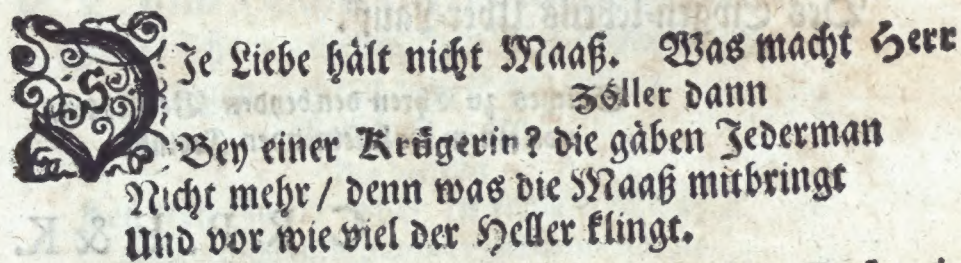 DJe Liebe hält nicht Maaß. Was macht Herr
Zöller dann
Bey einer Krügerin? die gäben Jederman
Nicht mehr / denn was die Maaß mitbringt
Und vor wie viel der Heller klingt.